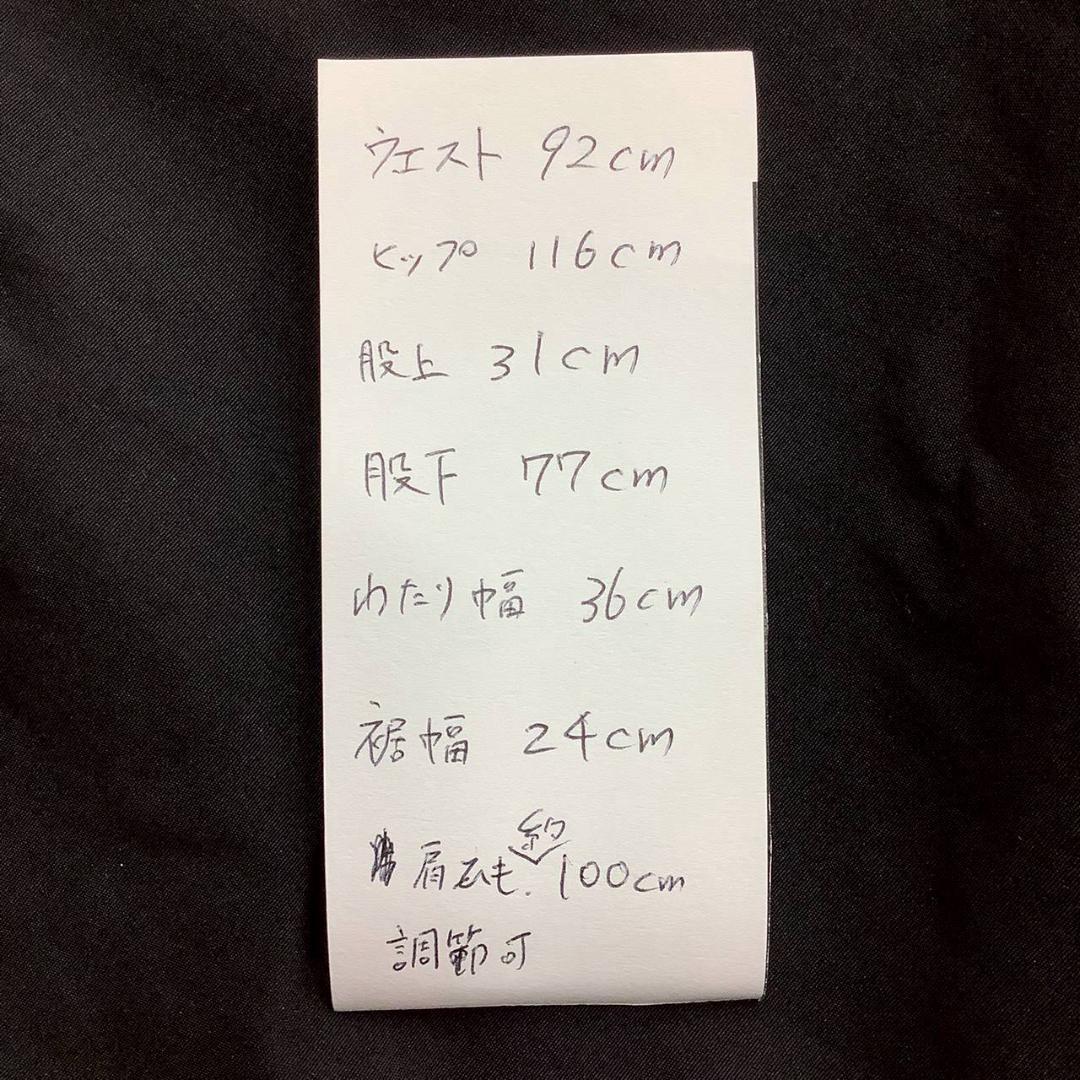 ウエスト 92cm
ヒップ 116cm
股上 31cm
股下 77cm
わたり幅 36cm
裾幅 24cm
肩ひも 約100cm
調節可